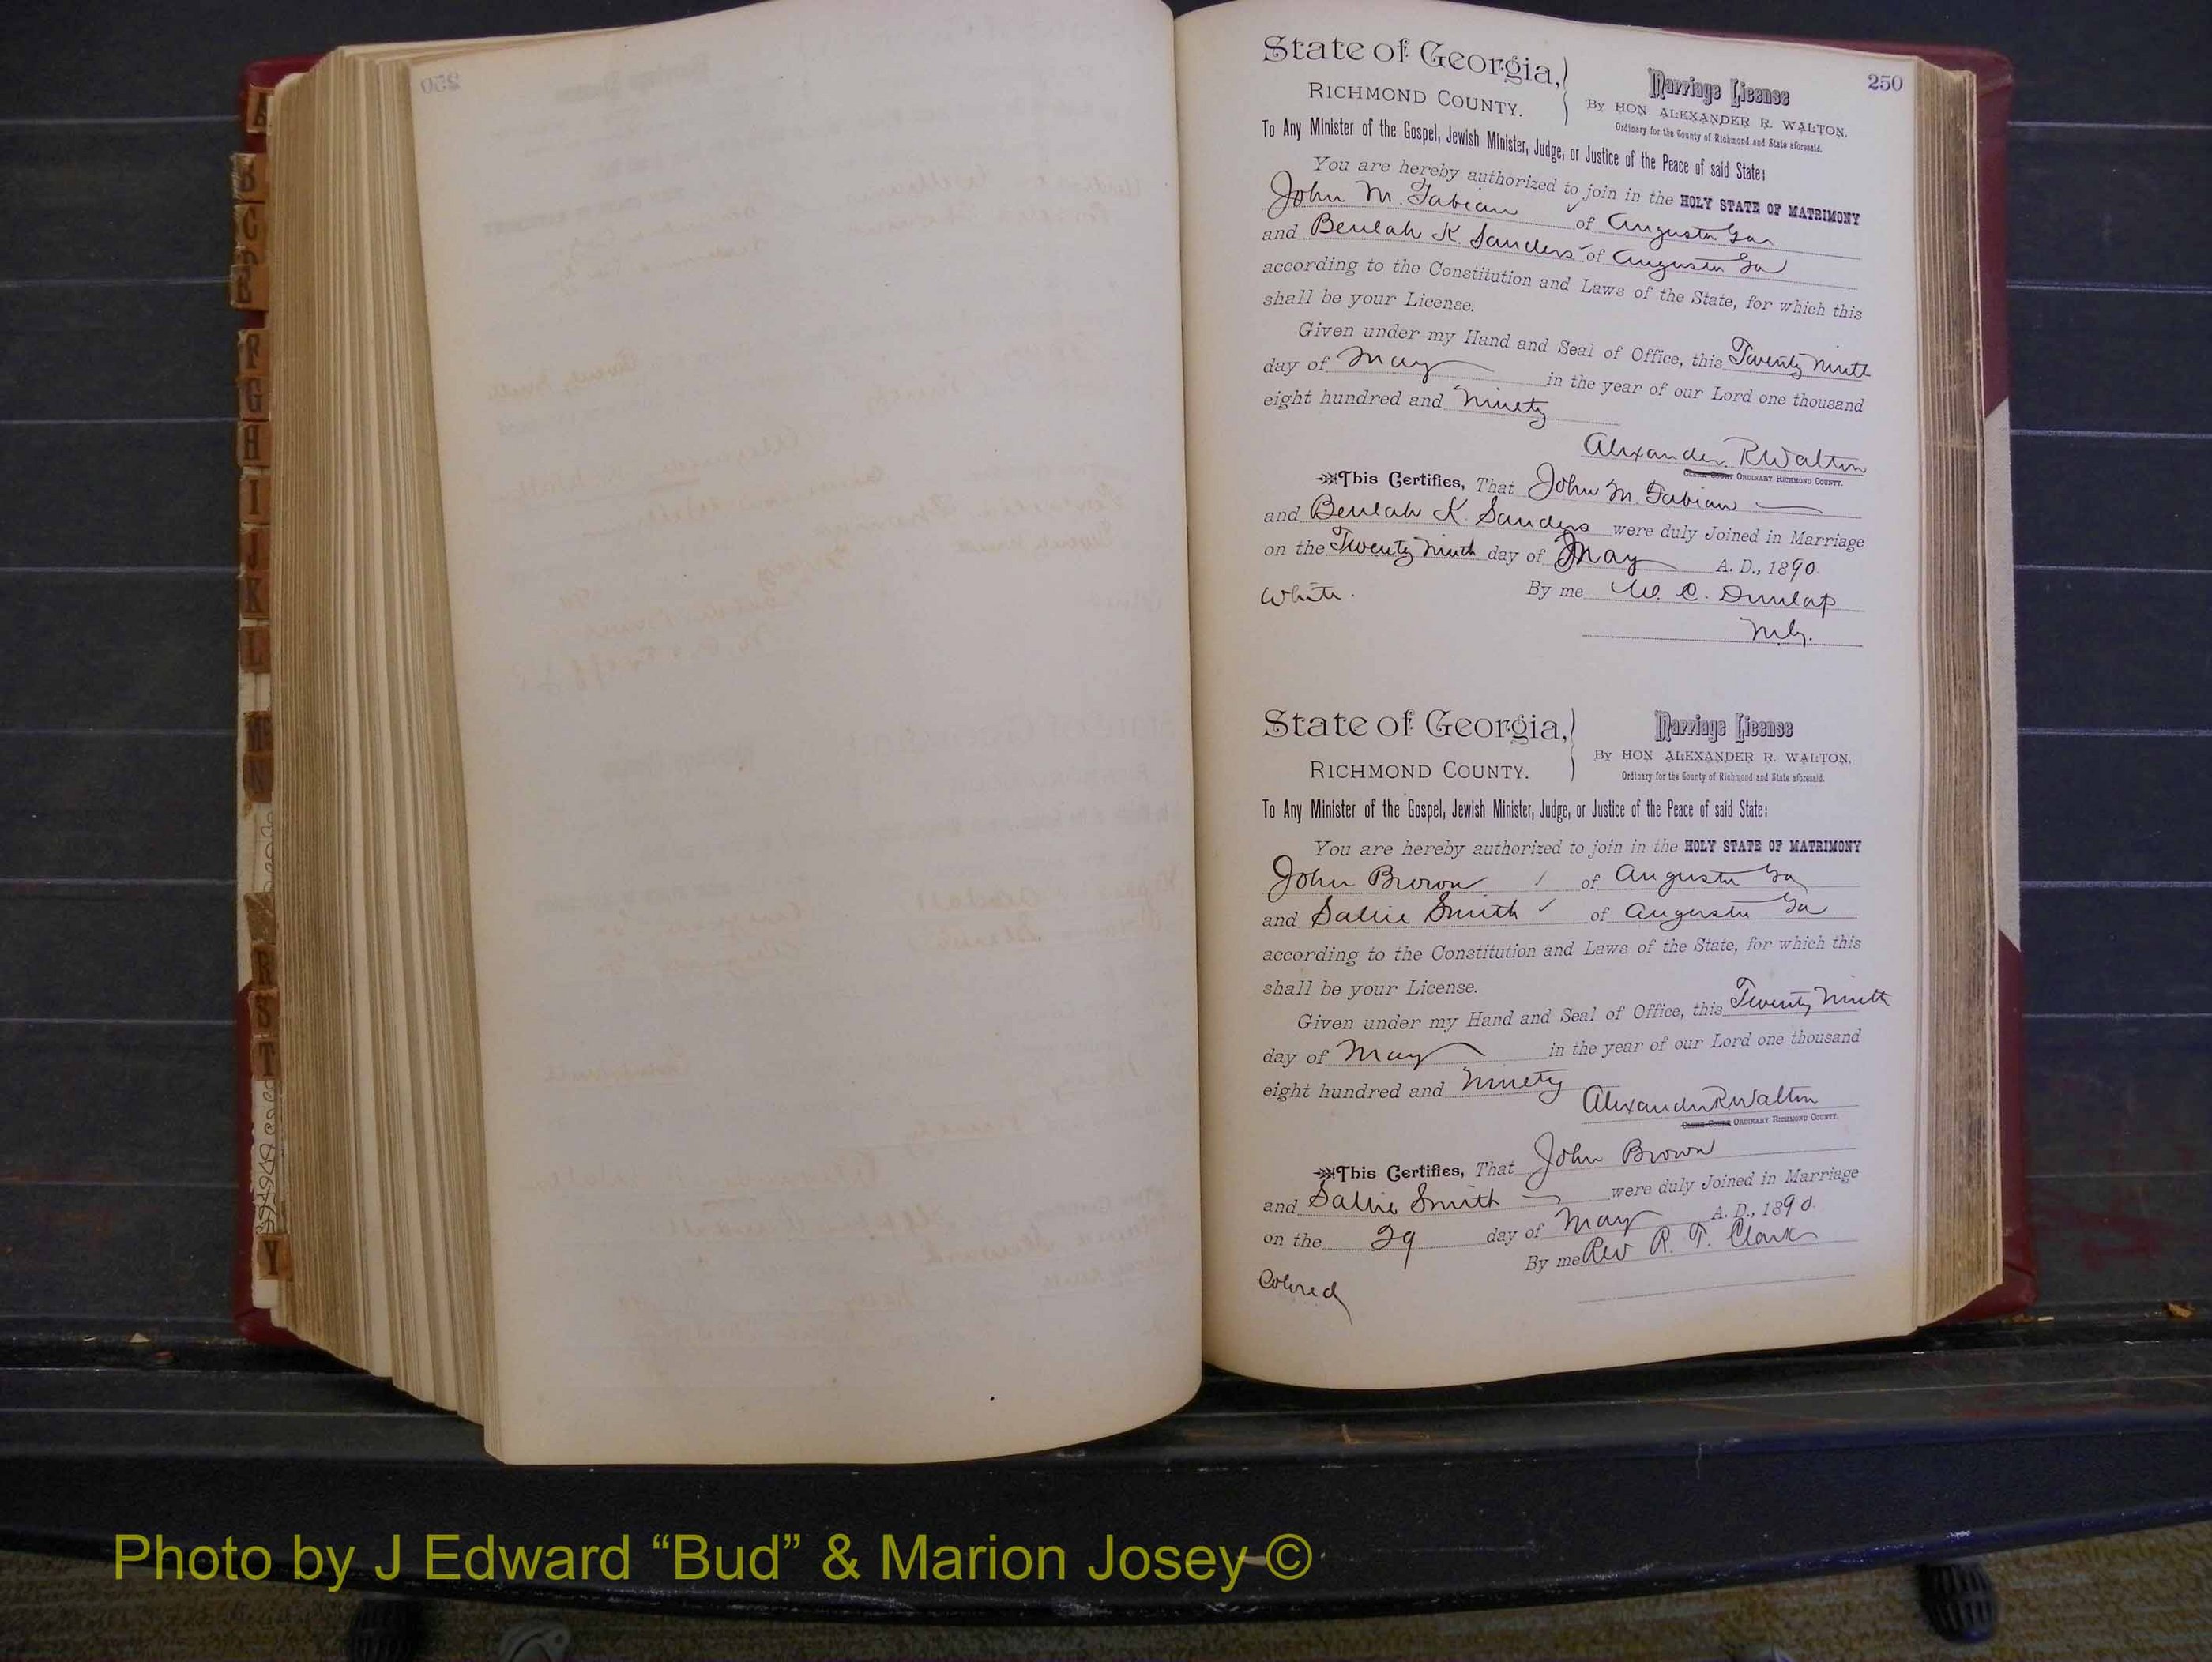 A
B
C
D
E
F
G
H
I
J
K
L
Mc
N
R
S
T
Y
250
State of Georgia,
RICHMOND COUNTY.
Marriage License
By HON ALEXANDER R. WALTON.
Ordinary for the County of Richmond and State aforesaid.
To Any Minister of the Gospel, Jewish Minister, Judge, or Justice of the Peace of said State:
You are hereby authorized to join in the HOLY STATE OF MATRIMONY
John M. Fabian of Augusta Ga
and Beulah K. Sanders of Augusta Ga
according to the Constitution and Laws of the State, for which this
shall be your License.
Given under my Hand and Seal of Office, this Twenty Ninth
day of May in the year of our Lord one thousand
eight hundred and Ninety
Alexander R Walton
ORDINARY RICHMOND COUNTY.
This Certifies, That John M. Fabian
and Beulah K. Sanders were duly Joined in Marriage
on the Twenty Ninth day of May A. D., 1890.
White. By me W. C. Dunlap
M.G.
State of Georgia,
RICHMOND COUNTY.
Marriage License
By HON ALEXANDER R. WALTON,
Ordinary for the County of Richmond and State aforesaid.
To Any Minister of the Gospel, Jewish Minister, Judge, or Justice of the Peace of said State:
You are hereby authorized to join in the HOLY STATE OF MATRIMONY
John Brown of Augusta Ga
and Sallie Smith of Augusta Ga
according to the Constitution and Laws of the State, for which this
shall be your License.
Given under my Hand and Seal of Office, this Twenty Ninth
day of May in the year of our Lord one thousand
eight hundred and Ninety
Alexander R Walton
ORDINARY RICHMOND COUNTY.
This Certifies, That John Brown
and Sallie Smith were duly Joined in Marriage
on the 29 day of May A. D., 1890.
By me Rev R. T. Clark
Colored
Photo by J Edward “Bud” & Marion Josey ©